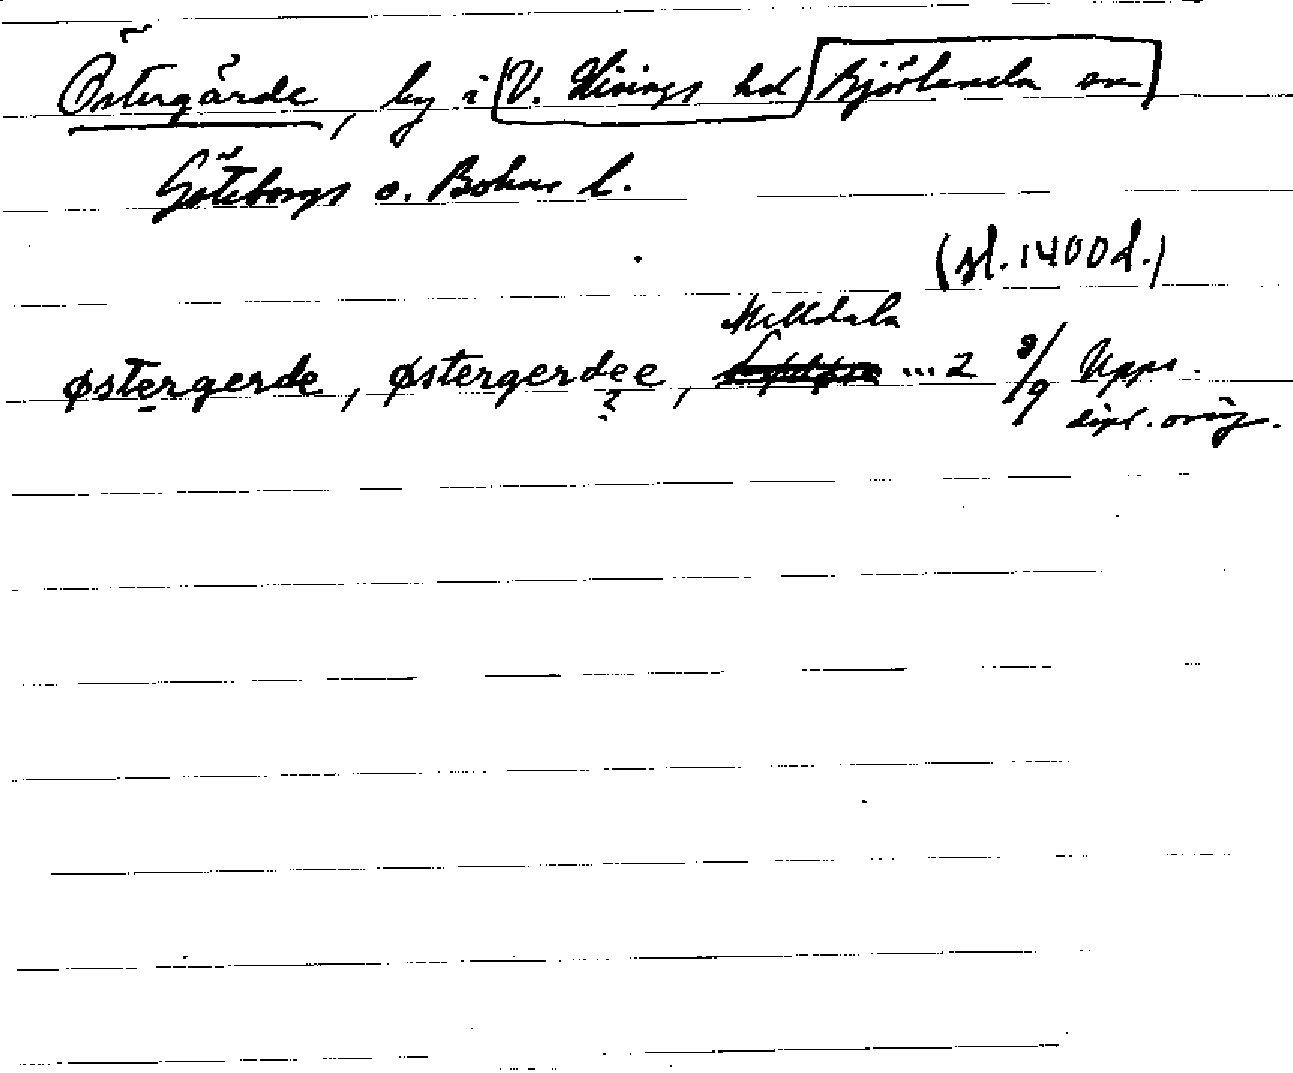 Östergärde, by i V. Hisings hd Björlanda sn
Göteborgs o. Bohus l.
(sl. 1400 t.)
østergerde, østergerdee, ... 2 9/9 Upps.
dipl. orig.